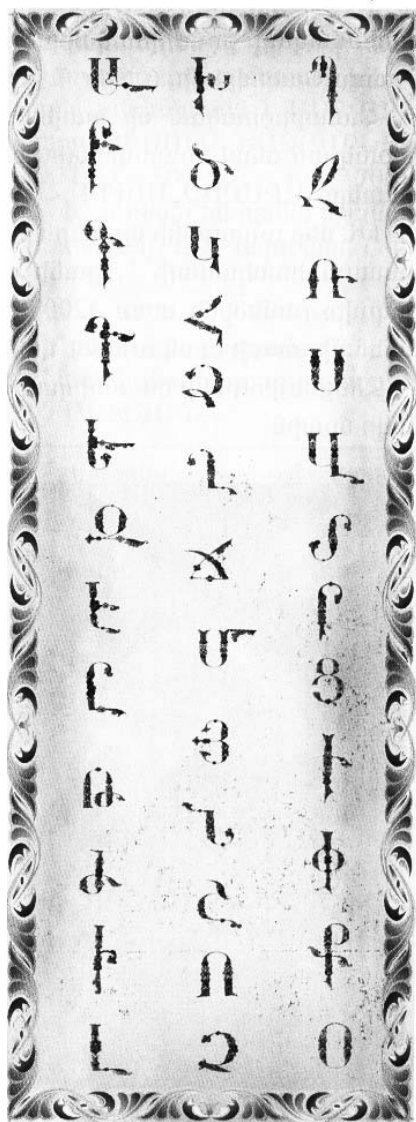 Ա
Բ
Գ
Դ
Ե
Զ
Է
Ը
Թ
Ժ
Ի
Լ
Խ
Ծ
Կ
Հ
Ձ
Ղ
Ճ
Մ
Յ
Ն
Շ
Ո
Չ
Պ
Ջ
Ռ
Ս
Վ
Տ
Ր
Ց
Ւ
Փ
Ք
Օ